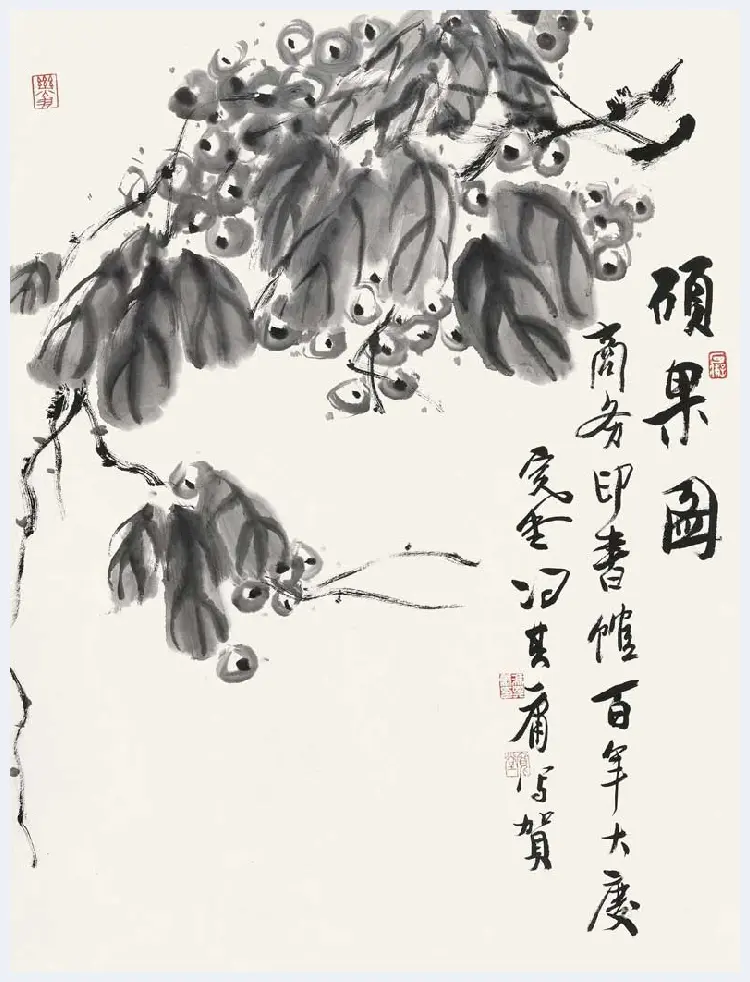 碩果圖
商务印書館百年大慶
寬堂冯其庸写賀